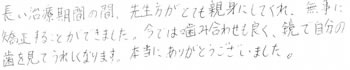 長い治療期間の間、先生方がとても親身にしてくれ、無事に
矯正することができました。今では噛み合わせも良く、鏡で自分の
歯を見てうれしくなります。本当にありがとうございました。